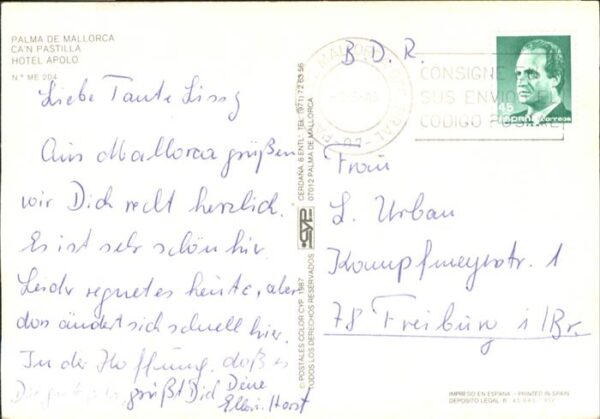 PALMA DE MALLORCA
CA'N PASTILLA
HOTEL APOLO
N.º ME 204
Liebe Tante Lissy
Aus Mallorca grüßen
wir Dich recht herzlich.
Es ist sehr schön hier.
Leider regnet es heute, aber
das ändert sich schnell hier.
In der Hoffnung, daß es
Dir gut geht, grüßt Dich Deine
Horst
© POSTALES COLOR CYP, 1987
TODOS LOS DERECHOS RESERVADOS
CYP
CERDAÑA, 8 ENTL.º TEL. (971)
07012 PALMA DE MALLORCA
B. D. R.
CONSIGNE
SUS ENVIOS
CODIGO POSTAL
45
ESPAÑA correos
Frau
L. Urban
Kampfmeyerstr. 1
78 Freiburg i/Br.
IMPRESO EN ESPAÑA - PRINTED IN SPAIN
DEPOSITO LEGAL B.